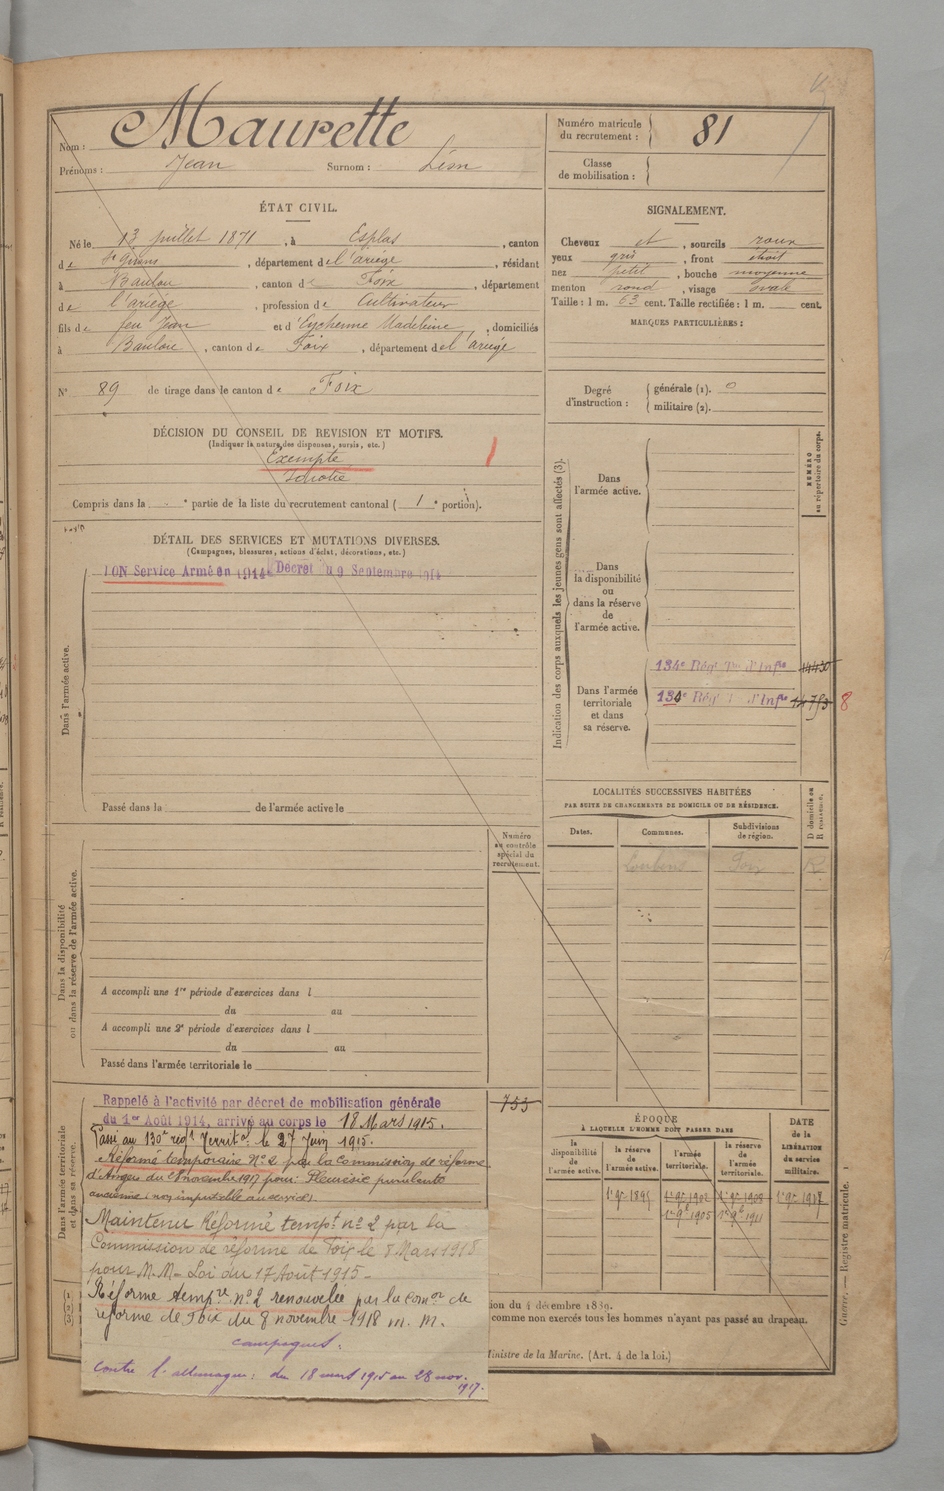 Nom : Maurette
Prénoms : Jean Surnom : Léon
Numéro matricule du recrutement : 81
Classe de mobilisation :
ÉTAT CIVIL.
Né le 13 juillet 1871, à Esplas, canton
de St Girons, département de l'ariège, résidant
à Baulou, canton de Foix, département
de l'ariège, profession de Cultivateur
fils de feu Jean et d'Eychenne Madeleine, domiciliés
à Baulou, canton de Foix, département de l'ariège
N° 89 de tirage dans le canton de Foix
SIGNALEMENT.
Cheveux et, sourcils roux
yeux gris, front étroit
nez petit, bouche moyenne
menton rond, visage ovale
Taille : 1 m. 63 cent. Taille rectifiée : 1 m. cent.
MARQUES PARTICULIÈRES :
Degré d'instruction : générale (1). 0
militaire (2).
DÉCISION DU CONSEIL DE REVISION ET MOTIFS.
(Indiquer la nature des dispenses, sursis, etc.)
Exempté
Compris dans la e partie de la liste du recrutement cantonal ( 1 e portion).
DÉTAIL DES SERVICES ET MUTATIONS DIVERSES.
(Campagnes, blessures, actions d'éclat, décorations, etc.)
Service Armé en 1914 Décret du 9 Septembre 1914
Dans l'armée active.
Passé dans la de l'armée active le
Indication des corps auxquels les jeunes gens sont affectés (3).
NUMÉRO au répertoire du corps.
Dans l'armée active.
Dans la disponibilité ou dans la réserve de l'armée active.
Dans l'armée territoriale et dans sa réserve.
134e Rég. Ter d'Infie 14430
134e Rég. T d'Infie 14753 8
LOCALITÉS SUCCESSIVES HABITÉES
PAR SUITE DE CHANGEMENTS DE DOMICILE OU DE RÉSIDENCE.
D domicile ou R résidence.
Dates. Communes. Subdivisions de région.
Loubens Foix R
Numéro au contrôle spécial du recrutement.
Dans la disponibilité ou dans la réserve de l'armée active.
A accompli une 1re période d'exercices dans l
du au
A accompli une 2e période d'exercices dans l
du au
Passé dans l'armée territoriale le
Dans l'armée territoriale et dans sa réserve.
Rappelé à l'activité par décret de mobilisation générale
du 1er Août 1914, arrivé au corps le 18 Mars 1915.
753
Passé au 130e régt Territal le 27 Juin 1915.
Réformé temporaire N° 2 par la Commission de réforme
d'Angers du novembre 1917 pour : Pleurésie purulente
ancienne (non imputable au service)
Maintenu Réformé tempt n° 2 par la
Commission de réforme de Foix le 8 Mars 1918
pour M.M. Loi du 17 Août 1915 -
Réforme tempre n° 2 renouvelée par la Comon de
réforme de Foix du 8 novembre 1918 m. m.
campagnes :
Contre l'allemagne : du 18 mars 1915 au 28 nov. 1917.
ÉPOQUE
À LAQUELLE L'HOMME DOIT PASSER DANS
DATE de la LIBÉRATION du service militaire.
la disponibilité de l'armée active. la réserve de l'armée active. l'armée territoriale. la réserve de l'armée territoriale.
1er 9e 1895 1er 9e 1902 1er 9e 1908 1er 9e 1917
1er 9e 1905 1er 9e 1911
ion du 4 décembre 1889.
comme non exercés tous les hommes n'ayant pas passé au drapeau.
Ministre de la Marine. (Art. 4 de la loi.)
Guerre. — Registre matricule. 1